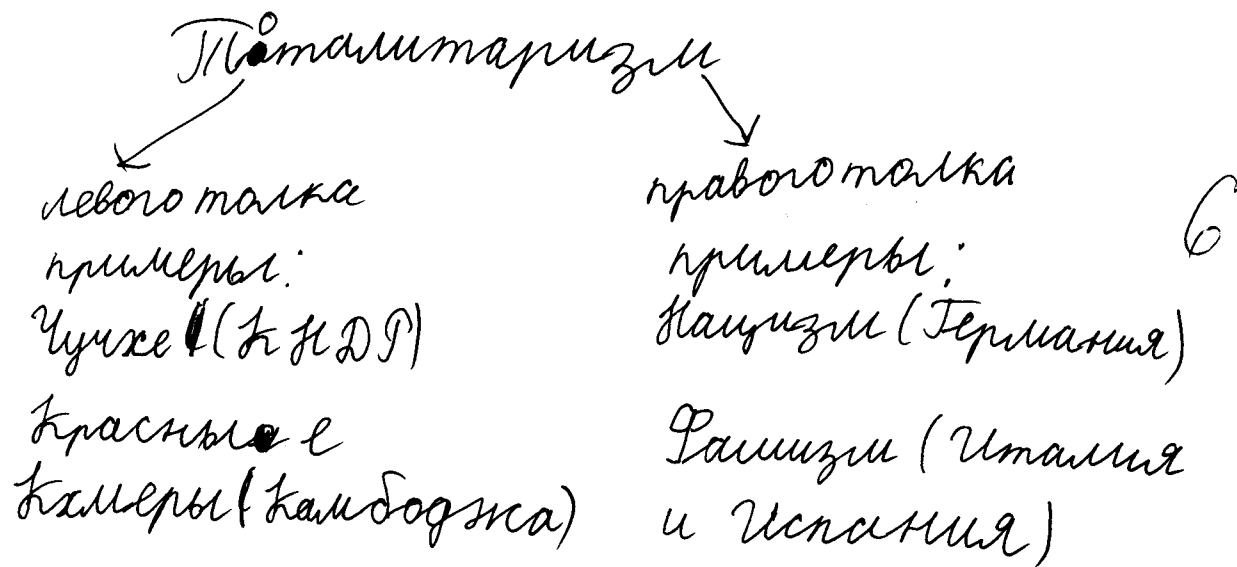 Тоталитаризм
левого толка
примеры:
Чучхе (КНДР)
Красные
Кхмеры (Камбоджа)
правого толка
примеры:
Нацизм (Германия)
Фашизм (Италия
и Испания)
6